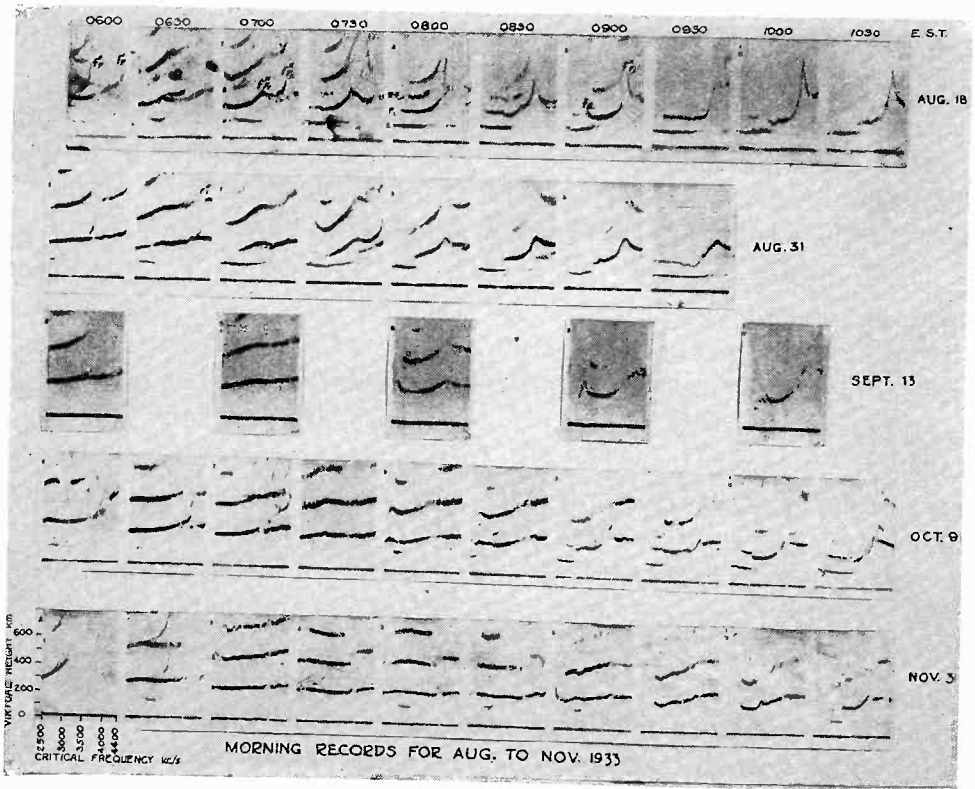 0600 0630 0700 0730 0800 0830 0900 0930 1000 1030 E.S.T.
AUG. 18
AUG. 31
SEPT. 13
OCT. 9
NOV. 3
VIRTUAL HEIGHT km
600
400
200
0
2500 3000 3500 4000 4400
CRITICAL FREQUENCY kc/s
MORNING RECORDS FOR AUG. TO NOV. 1933